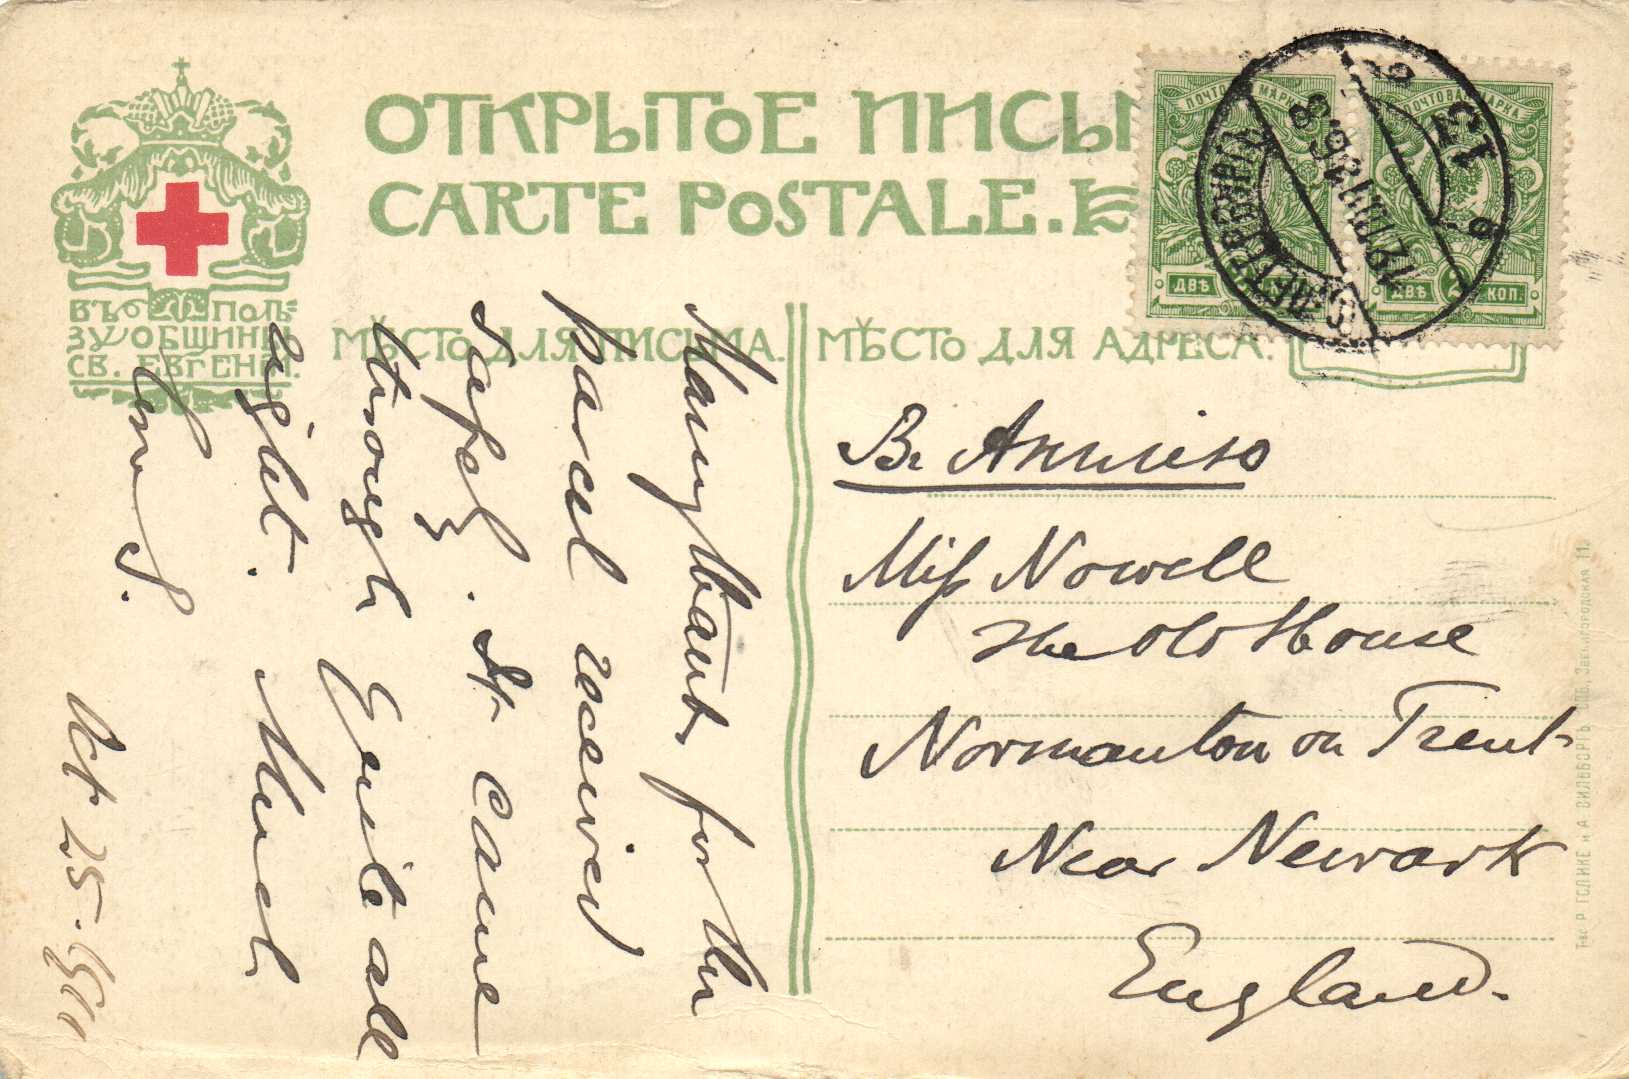 ОТКРЫТОЕ ПИСЬМ
CARTE POSTALE.
ВЪ ПОЛЬ
ЗУ ОБЩИНЫ
СВ. ЕВГЕНІИ.
МѢСТО ДЛЯ ПИСЬМА.
МѢСТО ДЛЯ АДРЕСА.
ПОЧТОВАЯ МАРКА
ДВѢ
ПОЧТОВАЯ МАРКА
ДВѢ 2 КОП.
Many thanks for the
parcel received
safely. It came
through quite all
right. Much
love
Oct 25.
Въ Англію
Miss Nowell
The Old House
Normanton on Trent
Near Newark
England.
Т-во Р. ГОЛИКЕ и А. ВИЛЬБОРГЪ. СПБ., Звенигородская 11.